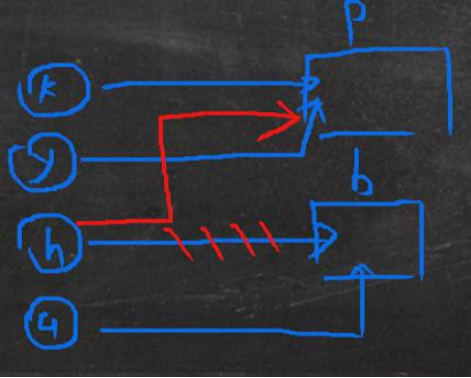 p
k
y
b
h
9